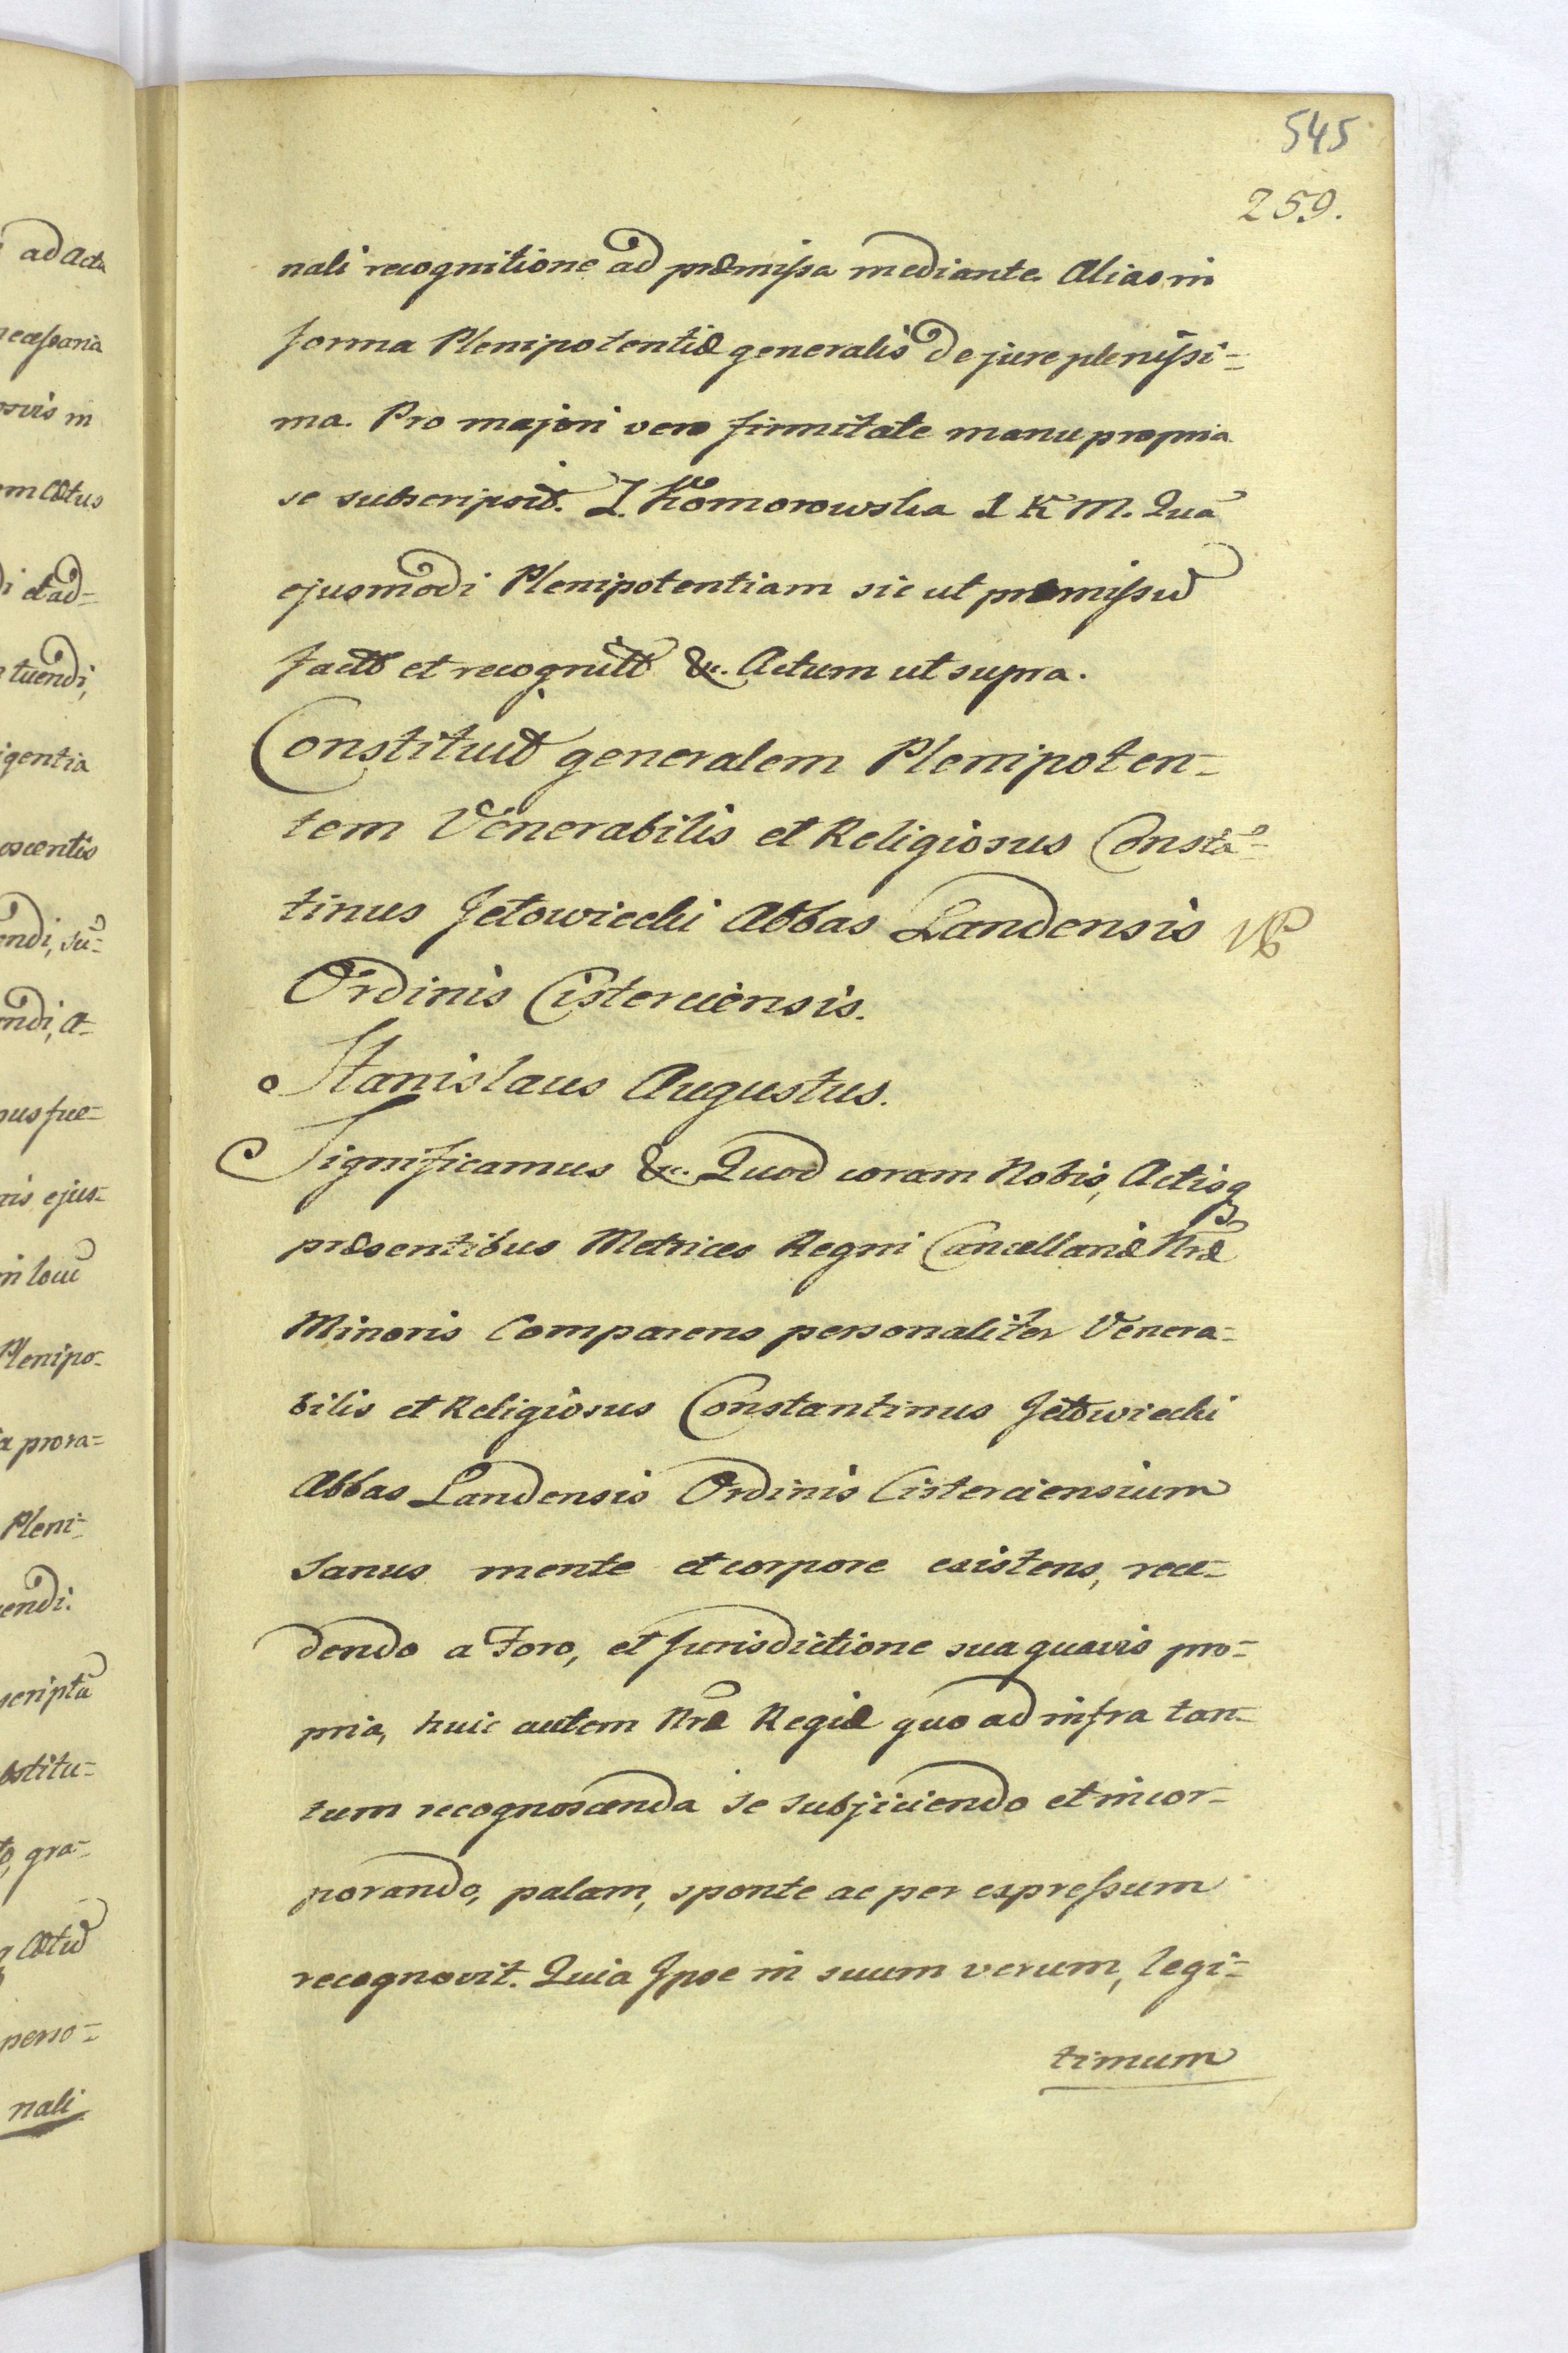 545
259.
nali recognitione ad præmissa mediante. Alias in
forma Plenipotentiæ generalis de jure plenissi=
ma. Pro majori vero firmitate manu propria
se subscripsit. Z. Komorowska S K M. Quã
ejusmodi Plenipotentiam sic ut præmissũ
factã et recognitã &c. Actum ut supra.
Constituit generalem Plenipoten=
tem Venerabilis et Religiosus Constã=
tinus Jełowiecki Abbas Landensis
Ordinis Cisterciensis.
Stanislaus Augustus.
Significamus &c. Quod coram Nobis, Actisq
præsentibus Metrices Regni Cancellariæ Nræ
Minoris Comparens personaliter Venera=
bilis et Religiosus Constantinus Jełowiecki
Abbas Landensis Ordinis Cisterciensium
Sanus mente et corpore existens, rece=
dendo a Foro, et Jurisdictione sua quavis pro=
pria, huic autem Nræ Regiæ quo ad infra tan=
tum recognoscenda se subjiciendo et incor=
porando, palam, sponte ac per expressum
recognovit. Quia Ipse in suum verum, legi=
timum
ad Acta
osvis in
Actus
di et ad=
tuendi,
igentia
oscentis
endi, su=
endi, a=
pus fue=
nis ejus=
in locũ
Plenipo=
a prova=
Pleni=
endi.
scriptũ
bstitu=
to, gra=
perso=
nali